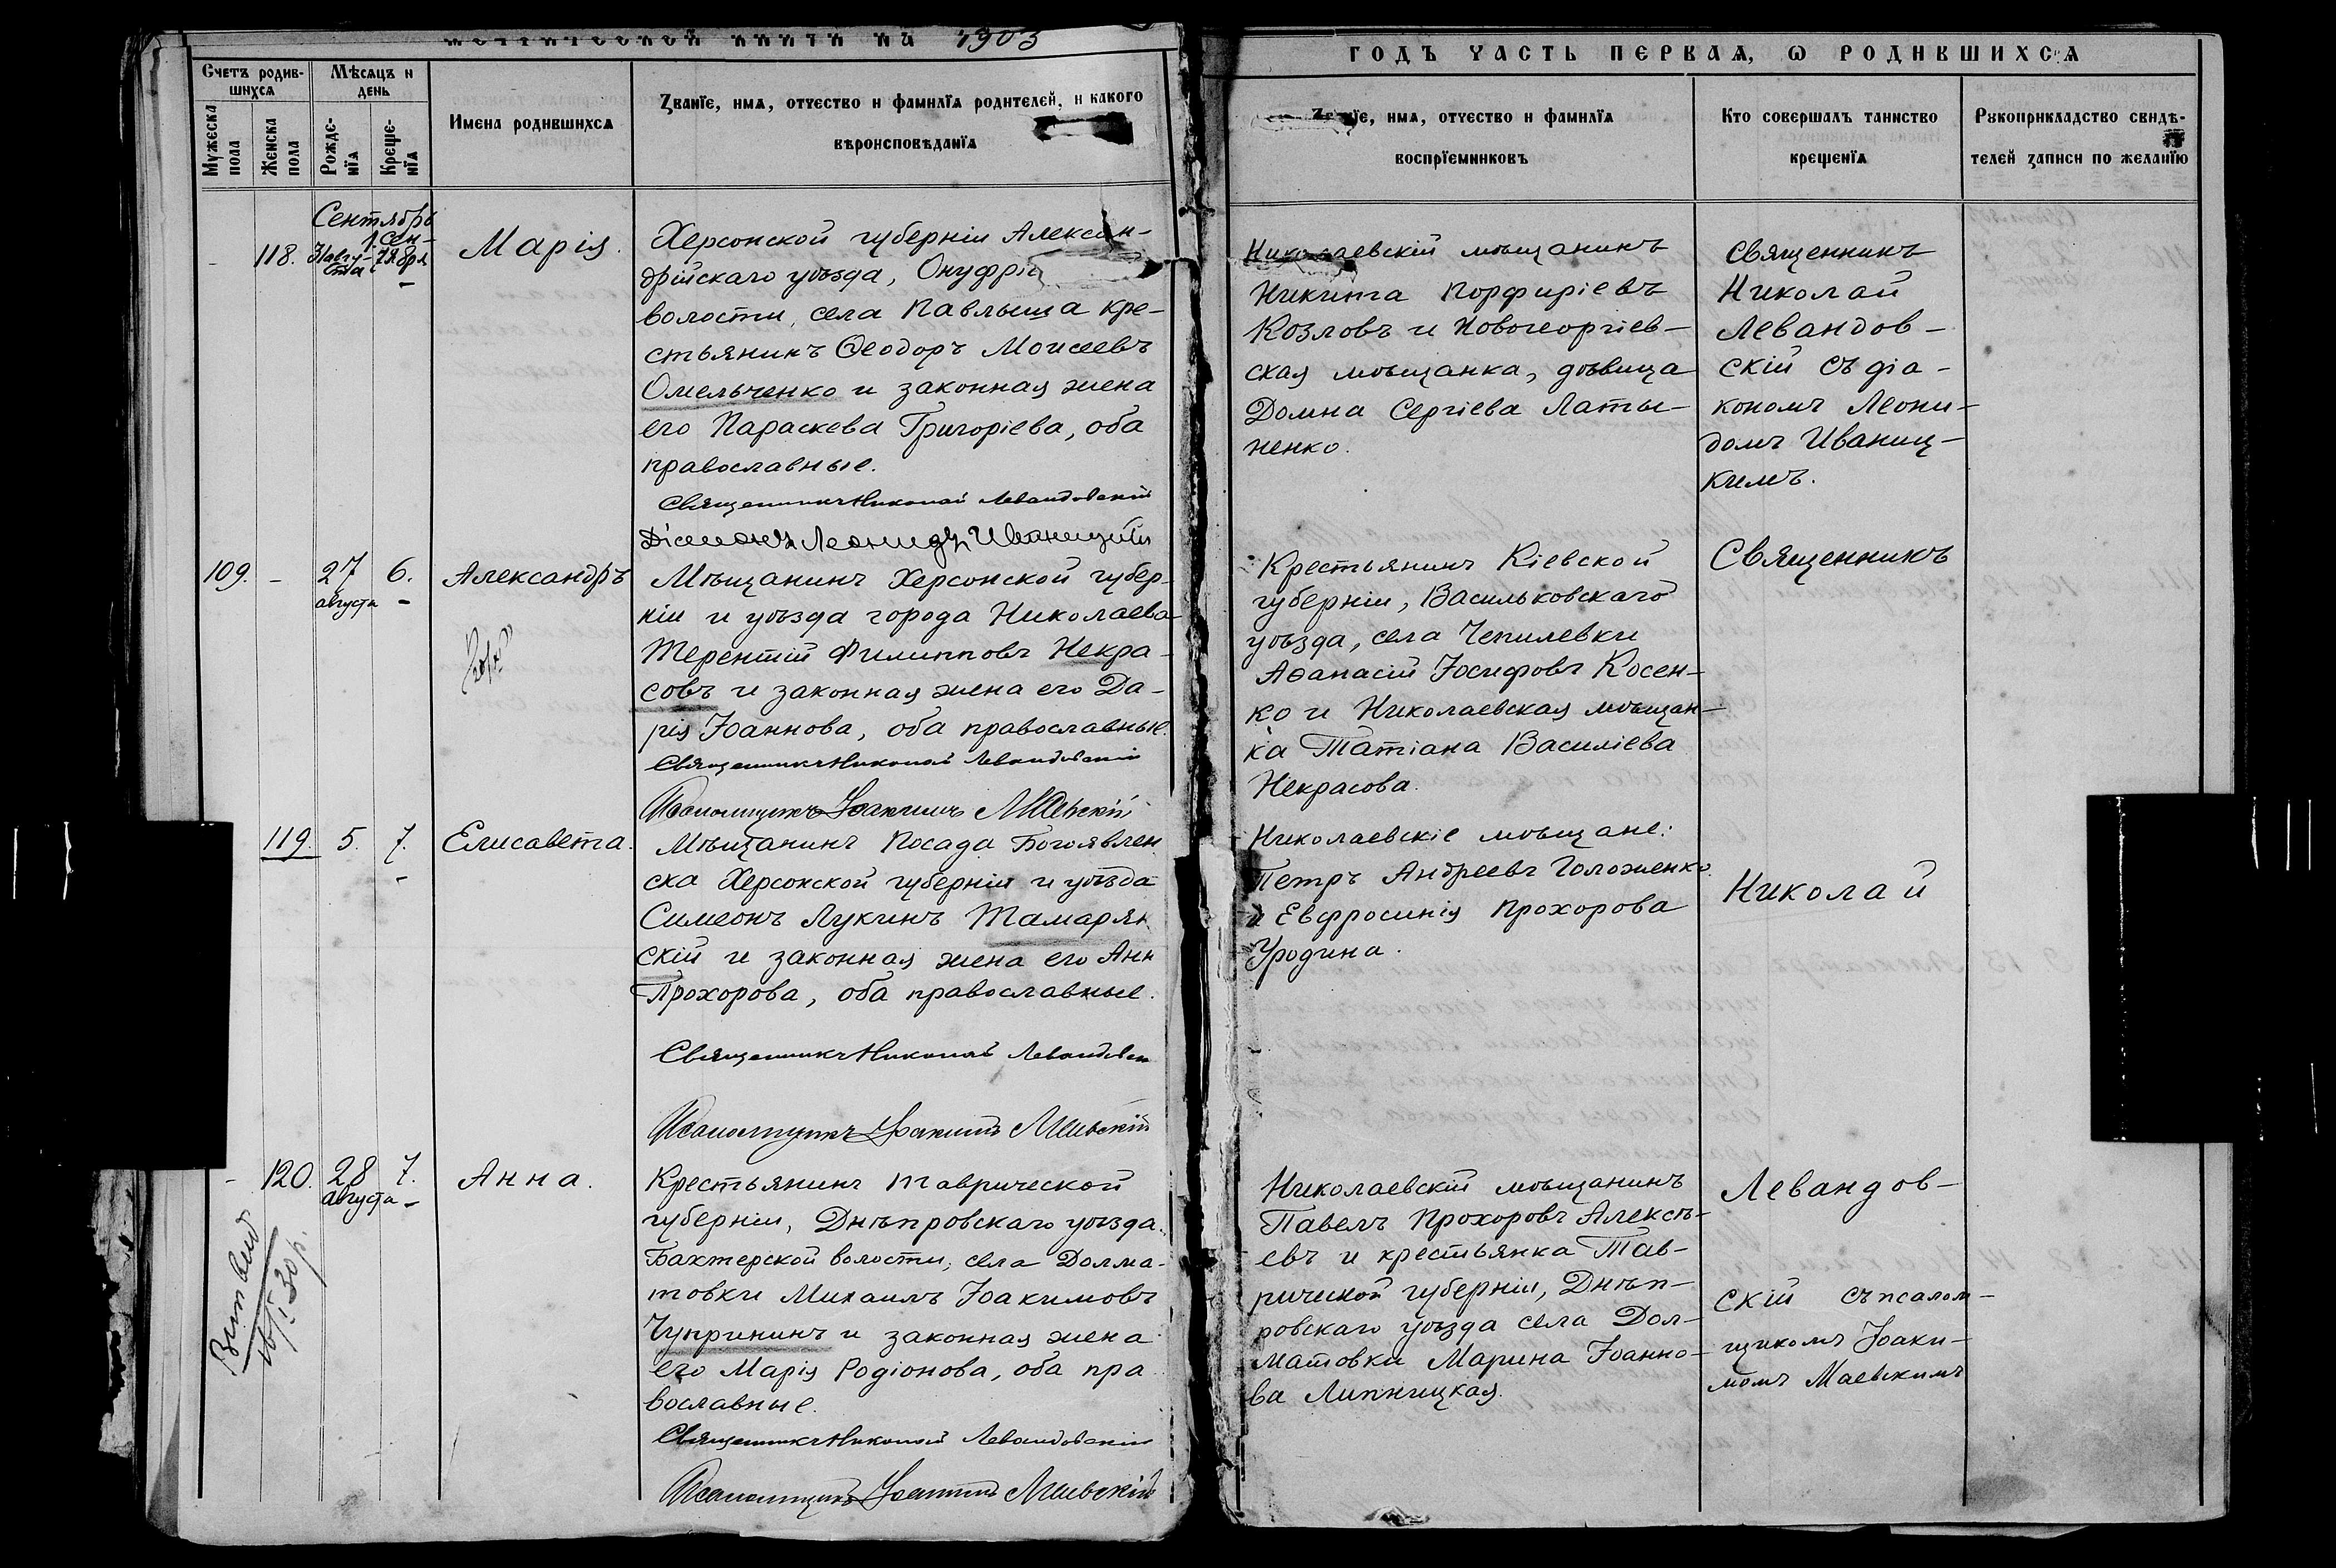 1903
ГОДЪ ЧАСТЬ ПЕРВАѦ, Ѡ РОДИВШИХСѦ
Счетъ родив-
шихсѧ
Мужеска
пола
Женска
пола
Мѣсѧцъ и
день
Рожде-
нїѧ
Креще-
нїѧ
Имена родившихсѧ
Званїе, имѧ, отчество и фамилїѧ родителей, и какого
вѣроисповѣданїѧ
имѧ, отчество и фамилїѧ
воспрїемниковъ
Кто совершалъ таинство
крещенїѧ
Рукоприкладство свидѣ-
телей записи по желанїю
Сентябрь
118.
Марія.
Херсонской губерніи Алексан-
дрійскаго уѣзда,
волости, села Павлыша кре-
стьянинъ Ѳеодоръ Моисеевъ
Омельченко и законная жена
его Параскева Григоріева, оба
православные.
Священникъ Николай Левандовскій
Діаконъ Леонидъ Иваницкій
Николаевскій мѣщанинъ
Никита Порфиріевъ
Козловъ и Новогеоргіев-
ская мѣщанка, дѣвица
Домна Сергіева Латы-
ненко.
Священникъ
Николай
Левандов-
скій съ діа-
кономъ Леони-
домъ Иваниц-
кимъ.
109. - 27 августа 6. -
Александръ
Мѣщанинъ Херсонской губер-
ніи и уѣзда города Николаева
Терентій Филипповъ Некра-
совъ и законная жена его Да-
рія Іоаннова, оба православные.
Священникъ Николай Левандовскій
Псаломщикъ Іоакимъ Маевскій
Крестьянинъ Кіевской
губерніи, Васильковскаго
уѣзда, села Чепилевки
Аѳанасій Іосифовъ Косен-
ко и Николаевская мѣщан-
ка Татіана Василіева
Некрасова.
Священникъ
119. 5. 7. -
Елисавета.
Мѣщанинъ Посада Богоявлен
ска Херсонской губерніи и уѣзда
Симеонъ Лукинъ Тамарян
скій и законная жена его Анн
Прохорова, оба православные.
Священникъ Николай
Псаломщикъ Іоакимъ Маевскій
Николаевскіе мѣщане:
Петръ Андреевъ Голоженко
и Евфросинія Прохорова
Уродина.
Николай
- 120. 28 августа 7. -
Анна.
Крестьянинъ Таврической
губерніи, Днѣпровскаго уѣзда,
Бахтерской волости, села Долма-
товки Михаилъ Іоакимовъ
Чупрининъ и законная жена
его Марія Родіонова, оба пра
вославные.
Священникъ Николай Левандовскій
Псаломщикъ Іоакимъ Маевскій
Николаевскій мѣщанинъ
Павелъ Прохоровъ Алексѣ-
евъ и крестьянка Тав-
рической губерніи, Днѣп-
ровскаго уѣзда села Дол-
матовки Марина Іоанно-
ва Липницкая.
Левандов-
скій съ псалом-
щикомъ Іоаки-
момъ Маевскимъ